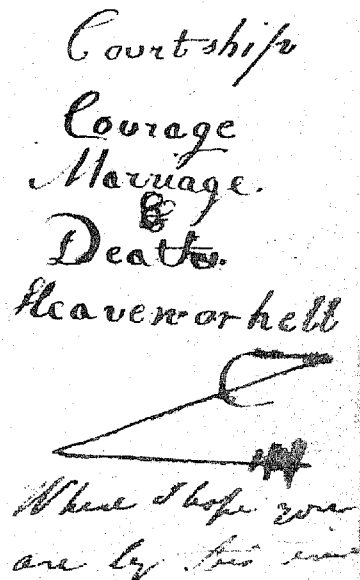 Courtship
Courage
Marriage.
&
Death.
Heaven or hell
Where I hope you
are by